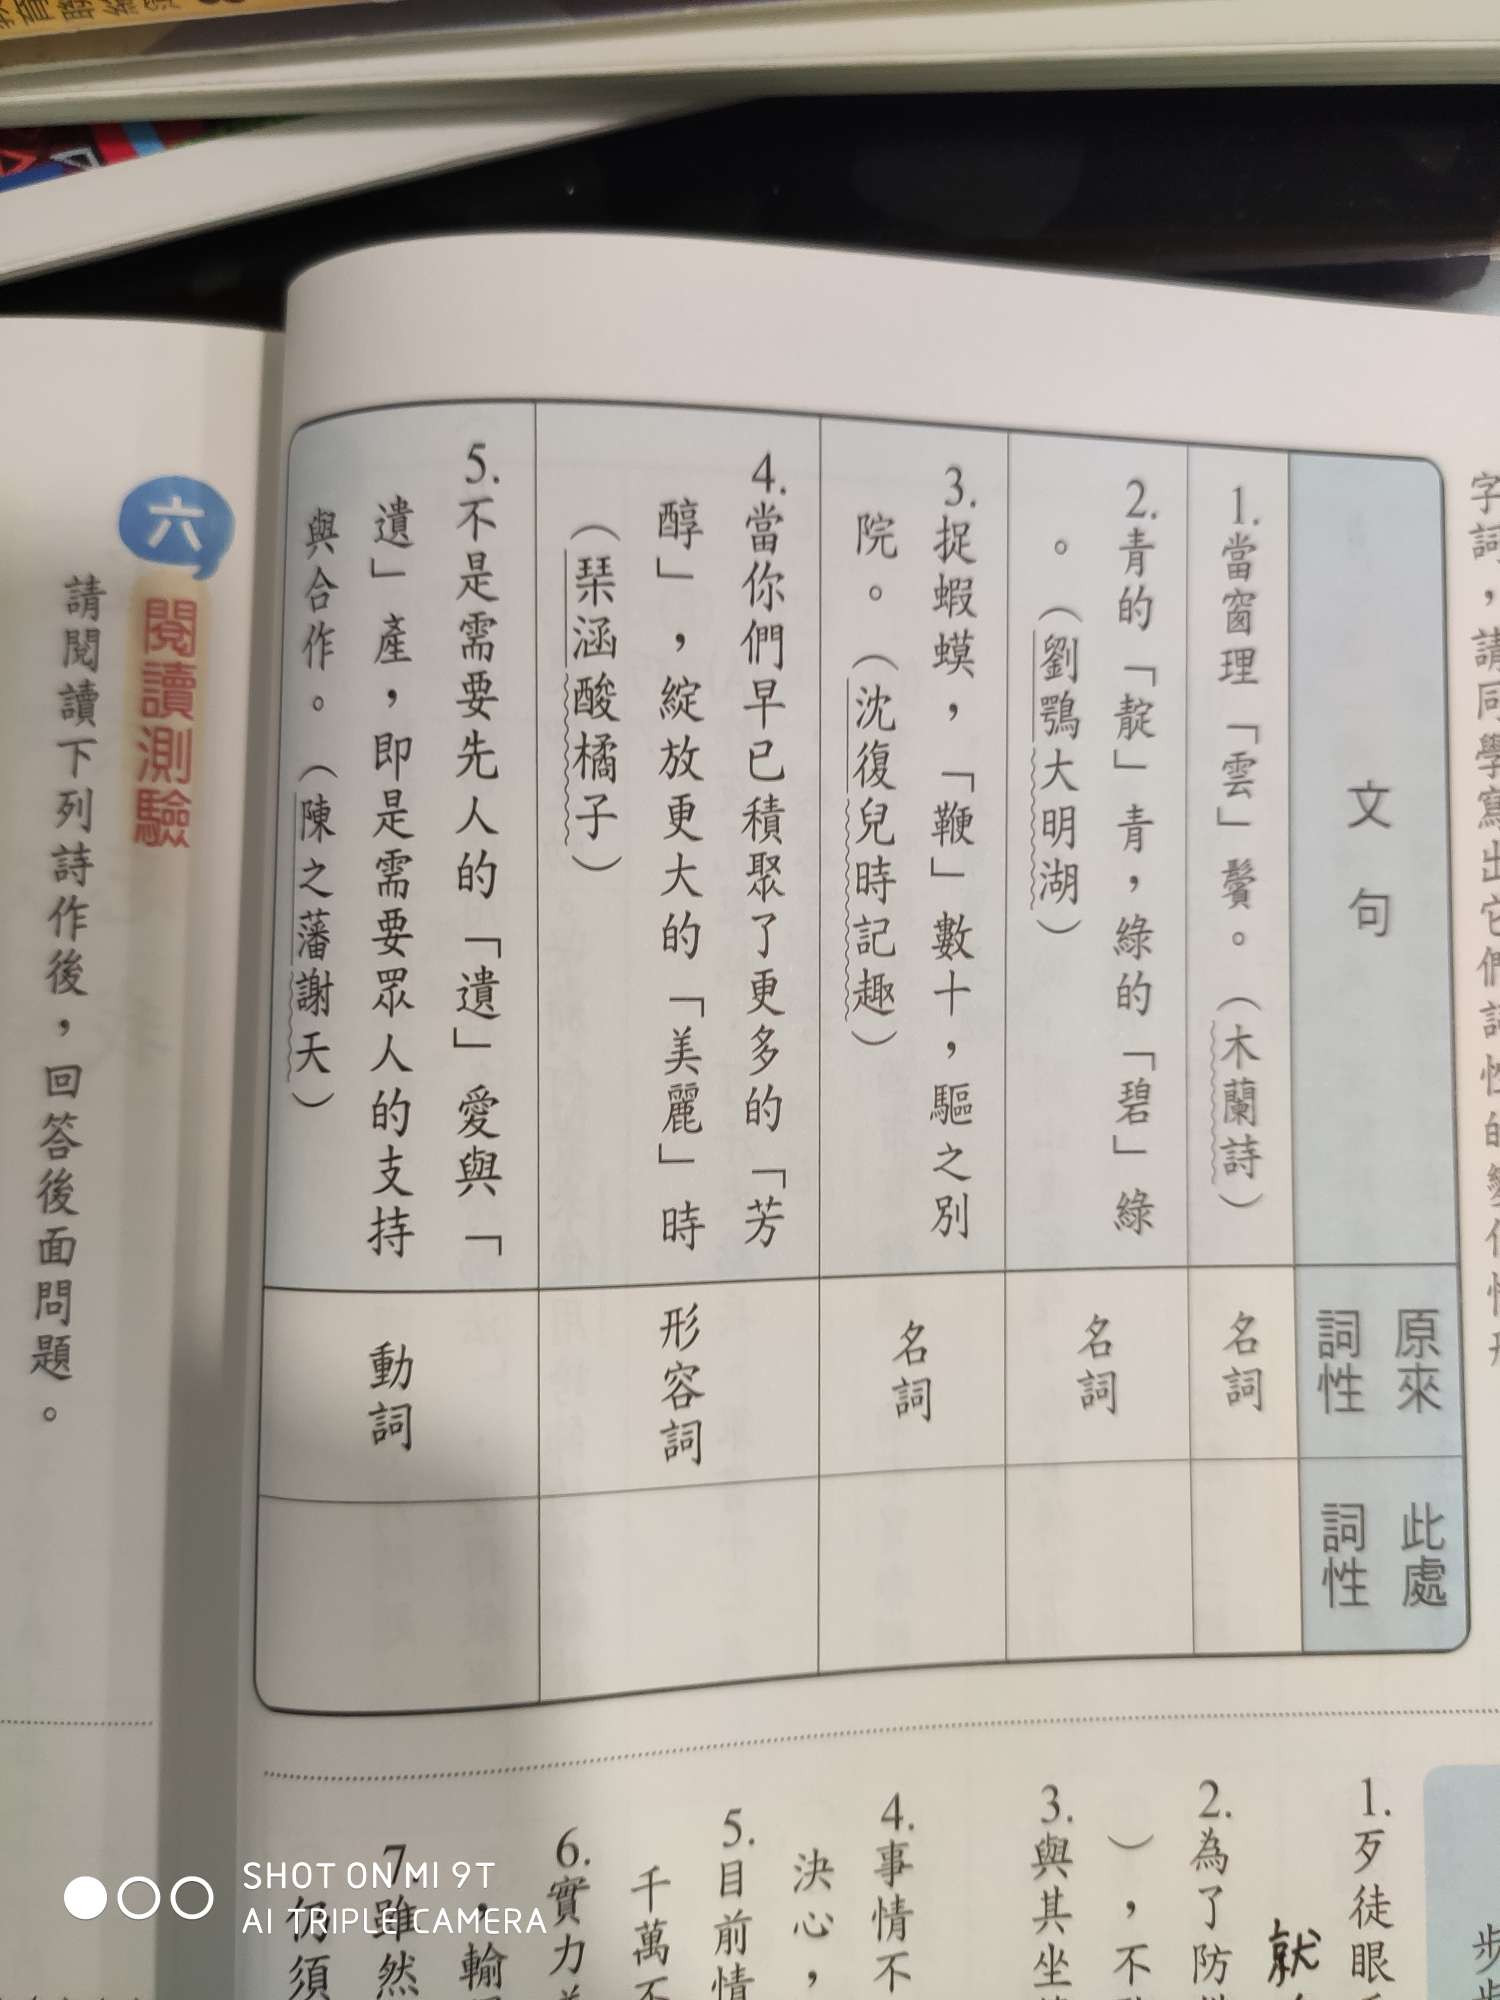 字詞，請同學寫出它們詞性的變化情形
文句
原來詞性
此處詞性
1.當窗理「雲」鬢。（木蘭詩）
名詞
2.青的「靛」青，綠的「碧」綠
。（劉鶚大明湖）
名詞
3.捉蝦蟆，「鞭」數十，驅之別
院。（沈復兒時記趣）
名詞
4.當你們早已積聚了更多的「芳
醇」，綻放更大的「美麗」時
（琹涵酸橘子）
形容詞
5.不是需要先人的「遺」愛與「
遺」產，即是需要眾人的支持
與合作。（陳之藩謝天）
動詞
1.歹徒眼
2.為了防
就
），不
3.與其坐
4.事情不
決心，
5.目前情
千萬不
6.實力
，輸
7.雖然
仍須
六 閱讀測驗
請閱讀下列詩作後，回答後面問題。
SHOT ON MI 9T
AI TRIPLE CAMERA